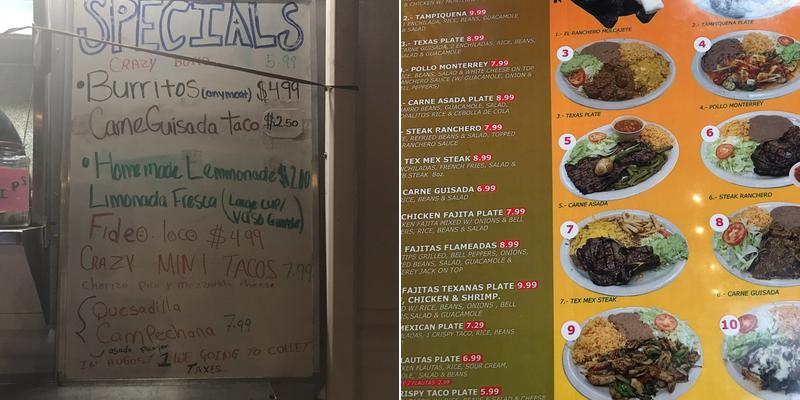 SPECIALS
CRAZY 5.99
• Burritos (any meat) $4.99
Carne Guisada Taco $2.50
• Homemade Lemmonade $2.00
Limonada Fresca (Large cup/
Vaso Grande)
Fideo loco $4.99
CRAZY MINI TACOS 7.99
Chorizo Pico y mozzarella cheese
Quesadilla
Campechana 7.99
asada
IN AUGUST 1 WE GOING TO COLLET
TAXES
IPS
2.- TAMPIQUENA 9.99
1 ENCHILADA, RICE, BEANS, GUACAMOLE
& SALAD
3.- TEXAS PLATE 8.99
CARNE GUISADA, 2 ENCHILADAS, RICE, BEANS,
SALAD & GUACAMOLE
.- POLLO MONTERREY 7.99
ICE, BEANS, SALAD & WHITE CHEESE ON TOP
RANCHERO SAUCE (W/ GUACAMOLE, ONION &
LL PEPPERS)
- CARNE ASADA PLATE 8.99
ARRO BEANS, GUACAMOLE, SALAD,
OPALITOS RICE & CEBOLLA DE COLA
STEAK RANCHERO 7.99
E, REFRIED BEANS & SALAD. TOPPED
RANCHERO SAUCE
TEX MEX STEAK 8.99
NCHILADA, FRENCH FRIES, SALAD &
B STEAK 8oz.
CARNE GUISADA 6.99
RICE, BEANS & SALAD
CHICKEN FAJITA PLATE 7.99
KEN FAJITA MIXED W/ ONIONS & BELL
ERS, RICE, BEANS & SALAD
FAJITAS FLAMEADAS 8.99
TIPS GRILLED, BELL PEPPERS, ONIONS,
ED BEANS, SALAD, GUACAMOLE &
EREY JACK ON TOP
FAJITAS TEXANAS PLATE 9.99
, CHICKEN & SHRIMP.
D W/ RICE, BEANS, ONIONS, BELL
S, SALAD & GUACAMOLE
MEXICAN PLATE 7.29
LADAS, 1 CRISPY TACO, RICE, BEANS
LAUTAS PLATE 6.99
KEN FLAUTAS, RICE, SOUR CREAM,
OLE, SALAD & BEANS
2 FLAUTAS 2.99
RISPY TACO PLATE 5.99
1.- EL RANCHERO MOLCAJETE
2.- TAMPIQUENA PLATE
3
4
3.- TEXAS PLATE
4.- POLLO MONTERREY
5
6
5.- CARNE ASADA
6.- STEAK RANCHERO
7
8
7.- TEX MEX STEAK
- CARNE GUISADA
9
10